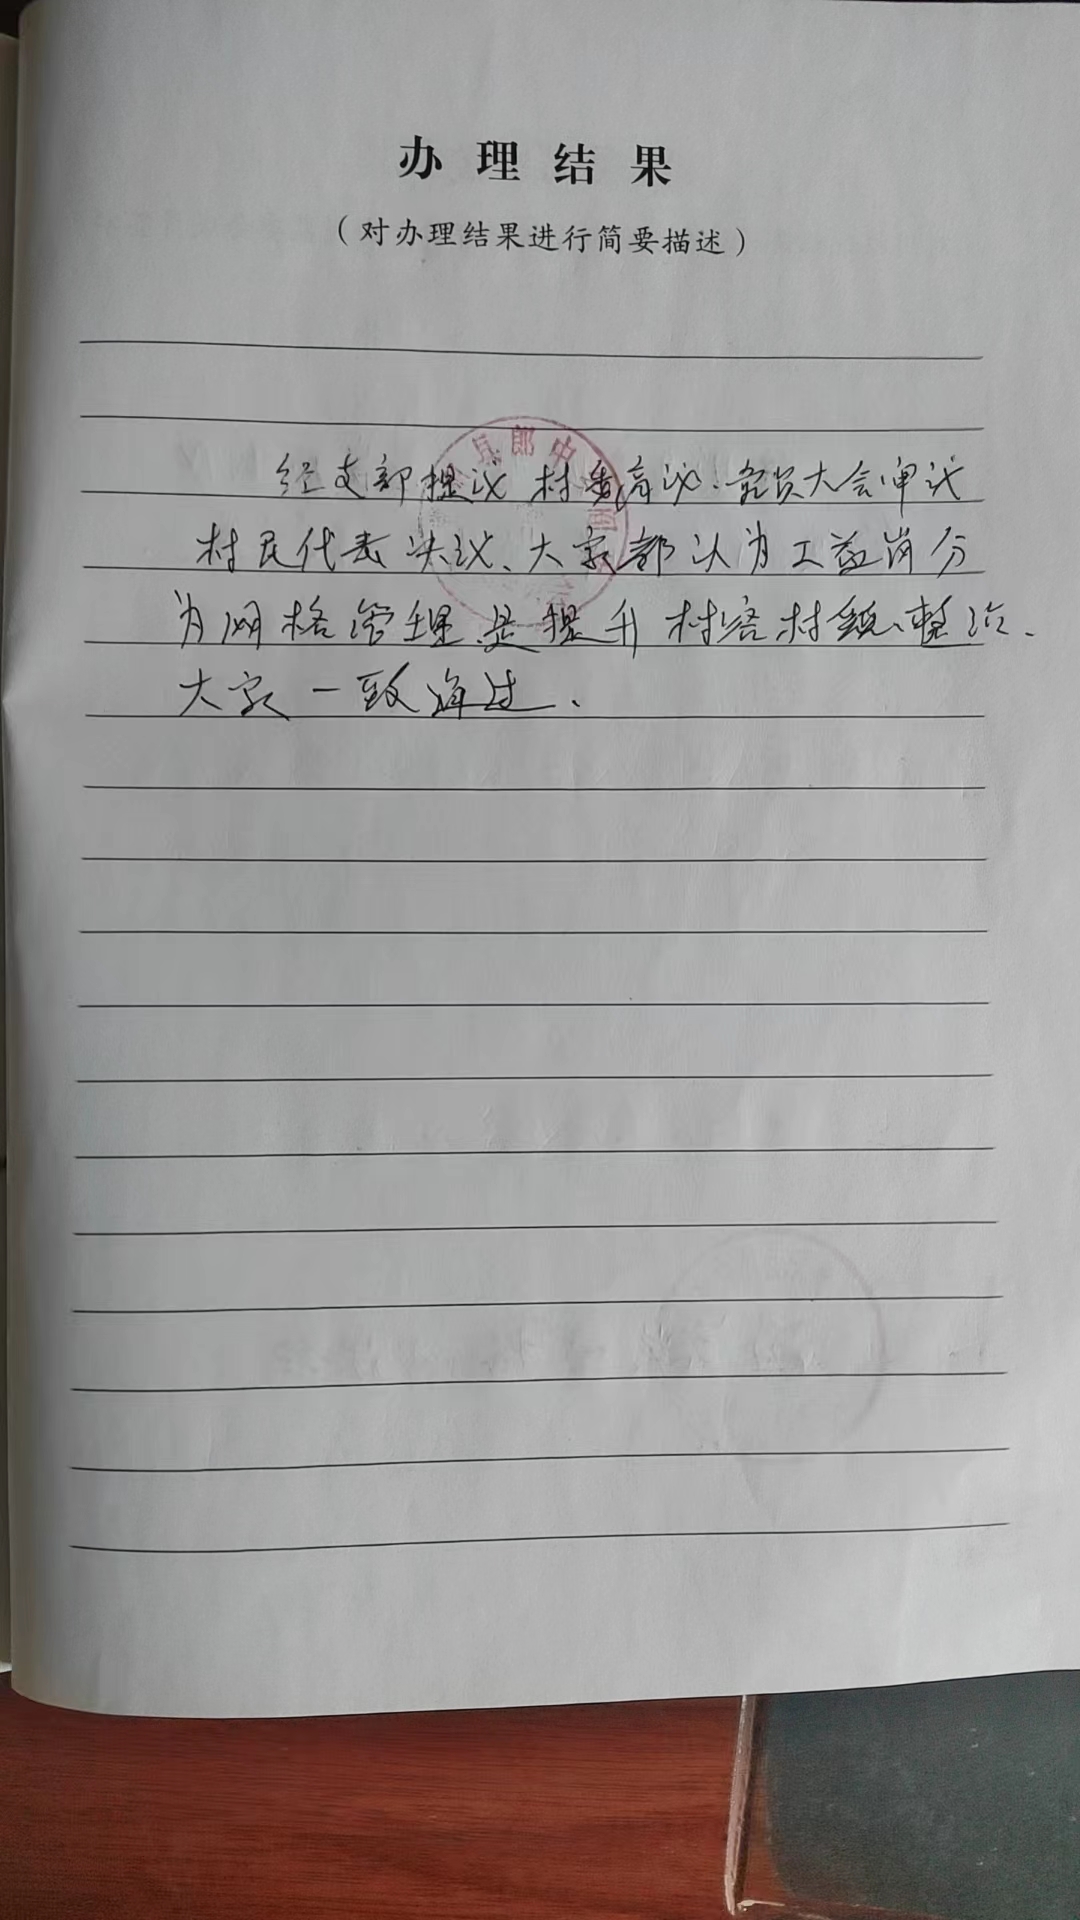 办理结果
(对办理结果进行简要描述)
经支部提议 村委商议、党员大会审议
村民代表决议、大家都认为工益岗分
为网格管理是提升村容村貌、整治、
大家一致通过、
郎中